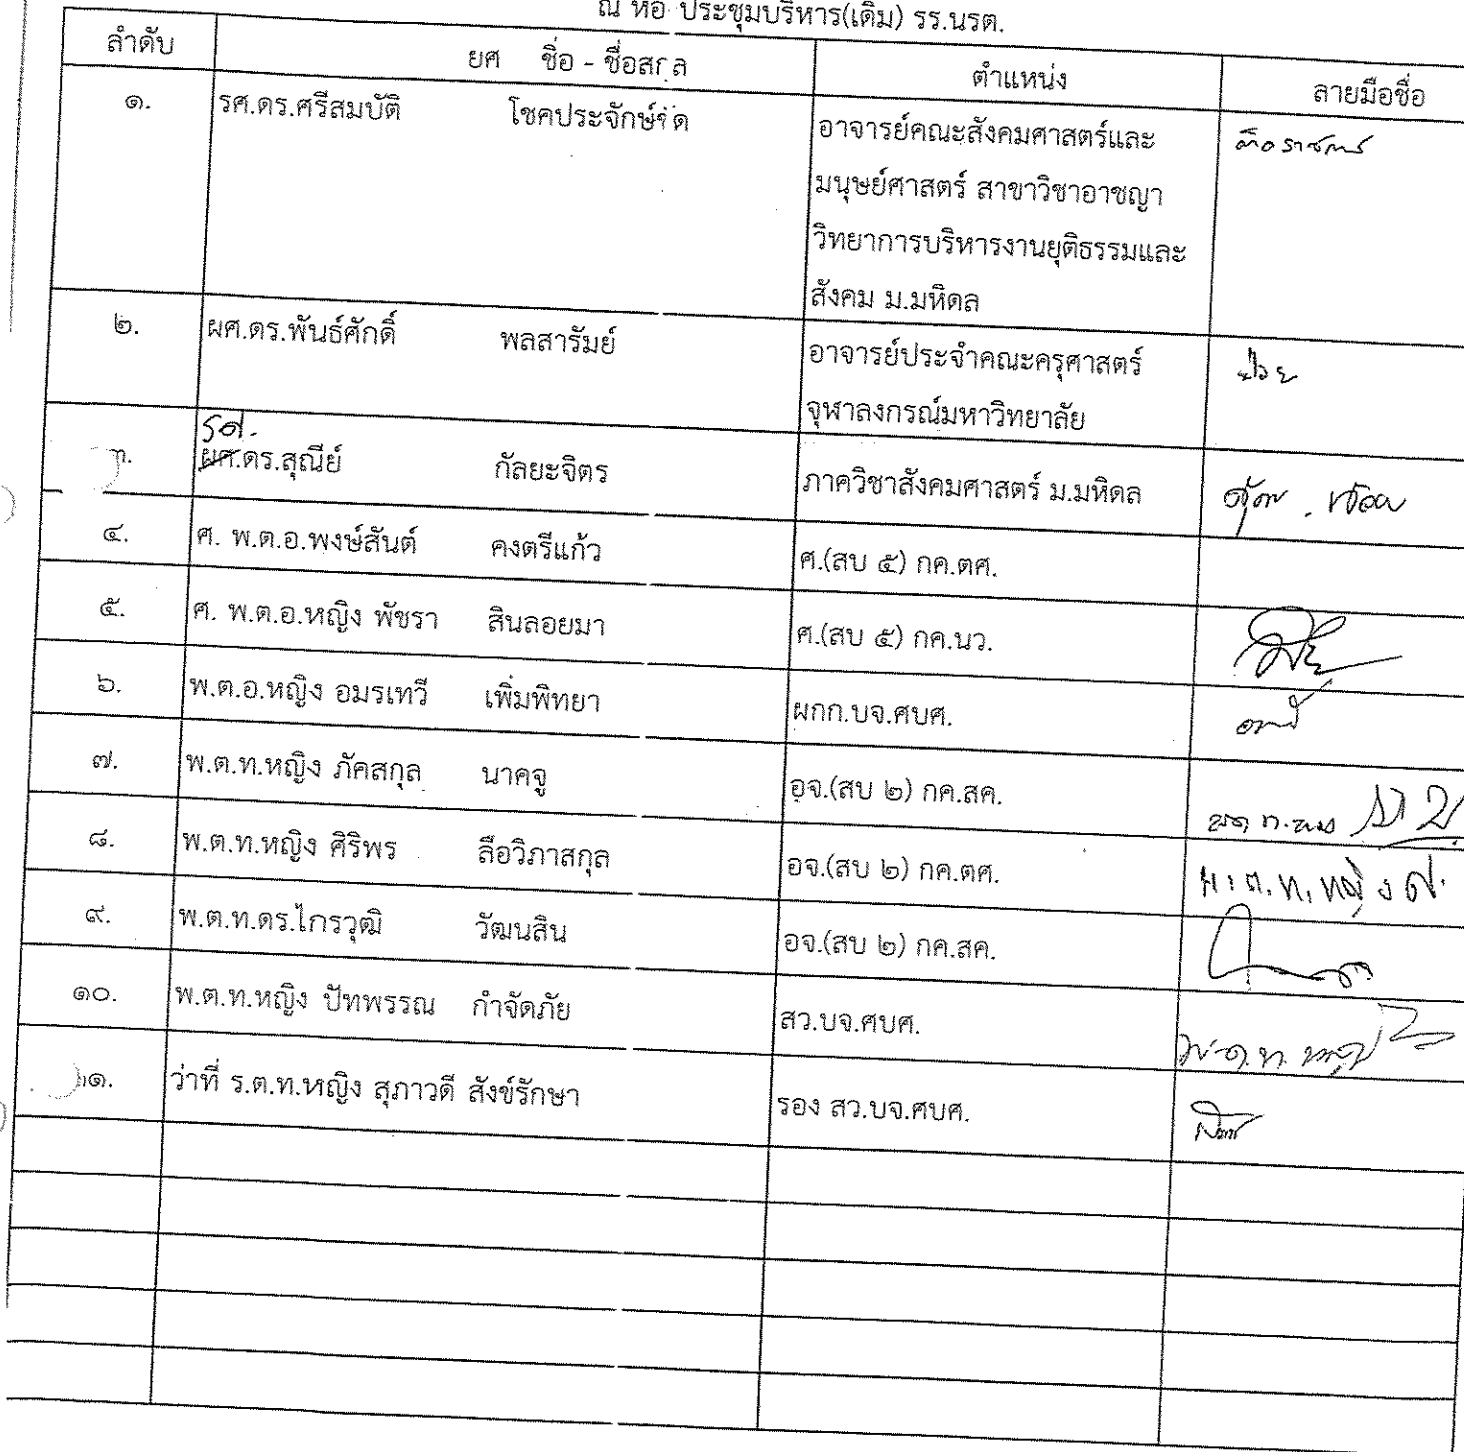 ณ ห้อ ประชุมบริหาร(เดิม) รร.นรต.
ลำดับ ยศ ชื่อ - ชื่อสกุล ตำแหน่ง ลายมือชื่อ
๑. รศ.ดร.ศรีสมบัติ โชคประจักษ์ชัด อาจารย์คณะสังคมศาสตร์และ ติดราชการ
มนุษย์ศาสตร์ สาขาวิชาอาชญา
วิทยาการบริหารงานยุติธรรมและ
สังคม ม.มหิดล
๒. ผศ.ดร.พันธ์ศักดิ์ พลสารัมย์ อาจารย์ประจำคณะครุศาสตร์ ป่วย
จุฬาลงกรณ์มหาวิทยาลัย
รศ.
๓. ผศ.ดร.สุณีย์ กัลยะจิตร ภาควิชาสังคมศาสตร์ ม.มหิดล
๔. ศ. พ.ต.อ.พงษ์สันต์ คงตรีแก้ว ศ.(สบ ๕) กค.ตศ.
๕. ศ. พ.ต.อ.หญิง พัชรา สินลอยมา ศ.(สบ ๕) กค.นว.
๖. พ.ต.อ.หญิง อมรเทวี เพิ่มพิทยา ผกก.บจ.ศบศ.
๗. พ.ต.ท.หญิง ภัคสกุล นาคจู อจ.(สบ ๒) กค.สค.
๘. พ.ต.ท.หญิง ศิริพร ลือวิภาสกุล อจ.(สบ ๒) กค.ตศ. พ.ต.ท.หญิง ศ.
๙. พ.ต.ท.ดร.ไกรวุฒิ วัฒนสิน อจ.(สบ ๒) กค.สค.
๑๐. พ.ต.ท.หญิง ปัทพรรณ กำจัดภัย สว.บจ.ศบศ. พ.ต.ท.หญิง
๑๑. ว่าที่ ร.ต.ท.หญิง สุภาวดี สังข์รักษา รอง สว.บจ.ศบศ.